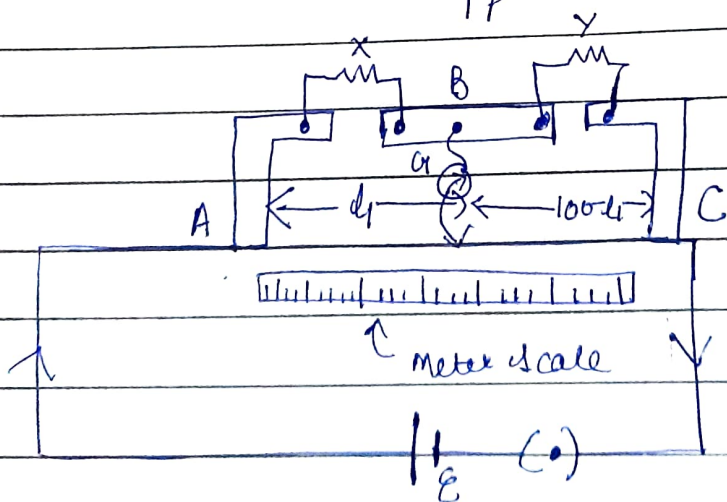 X
Y
B
G
A
l₁
100-l₁
C
Meter scale
ε
(•)